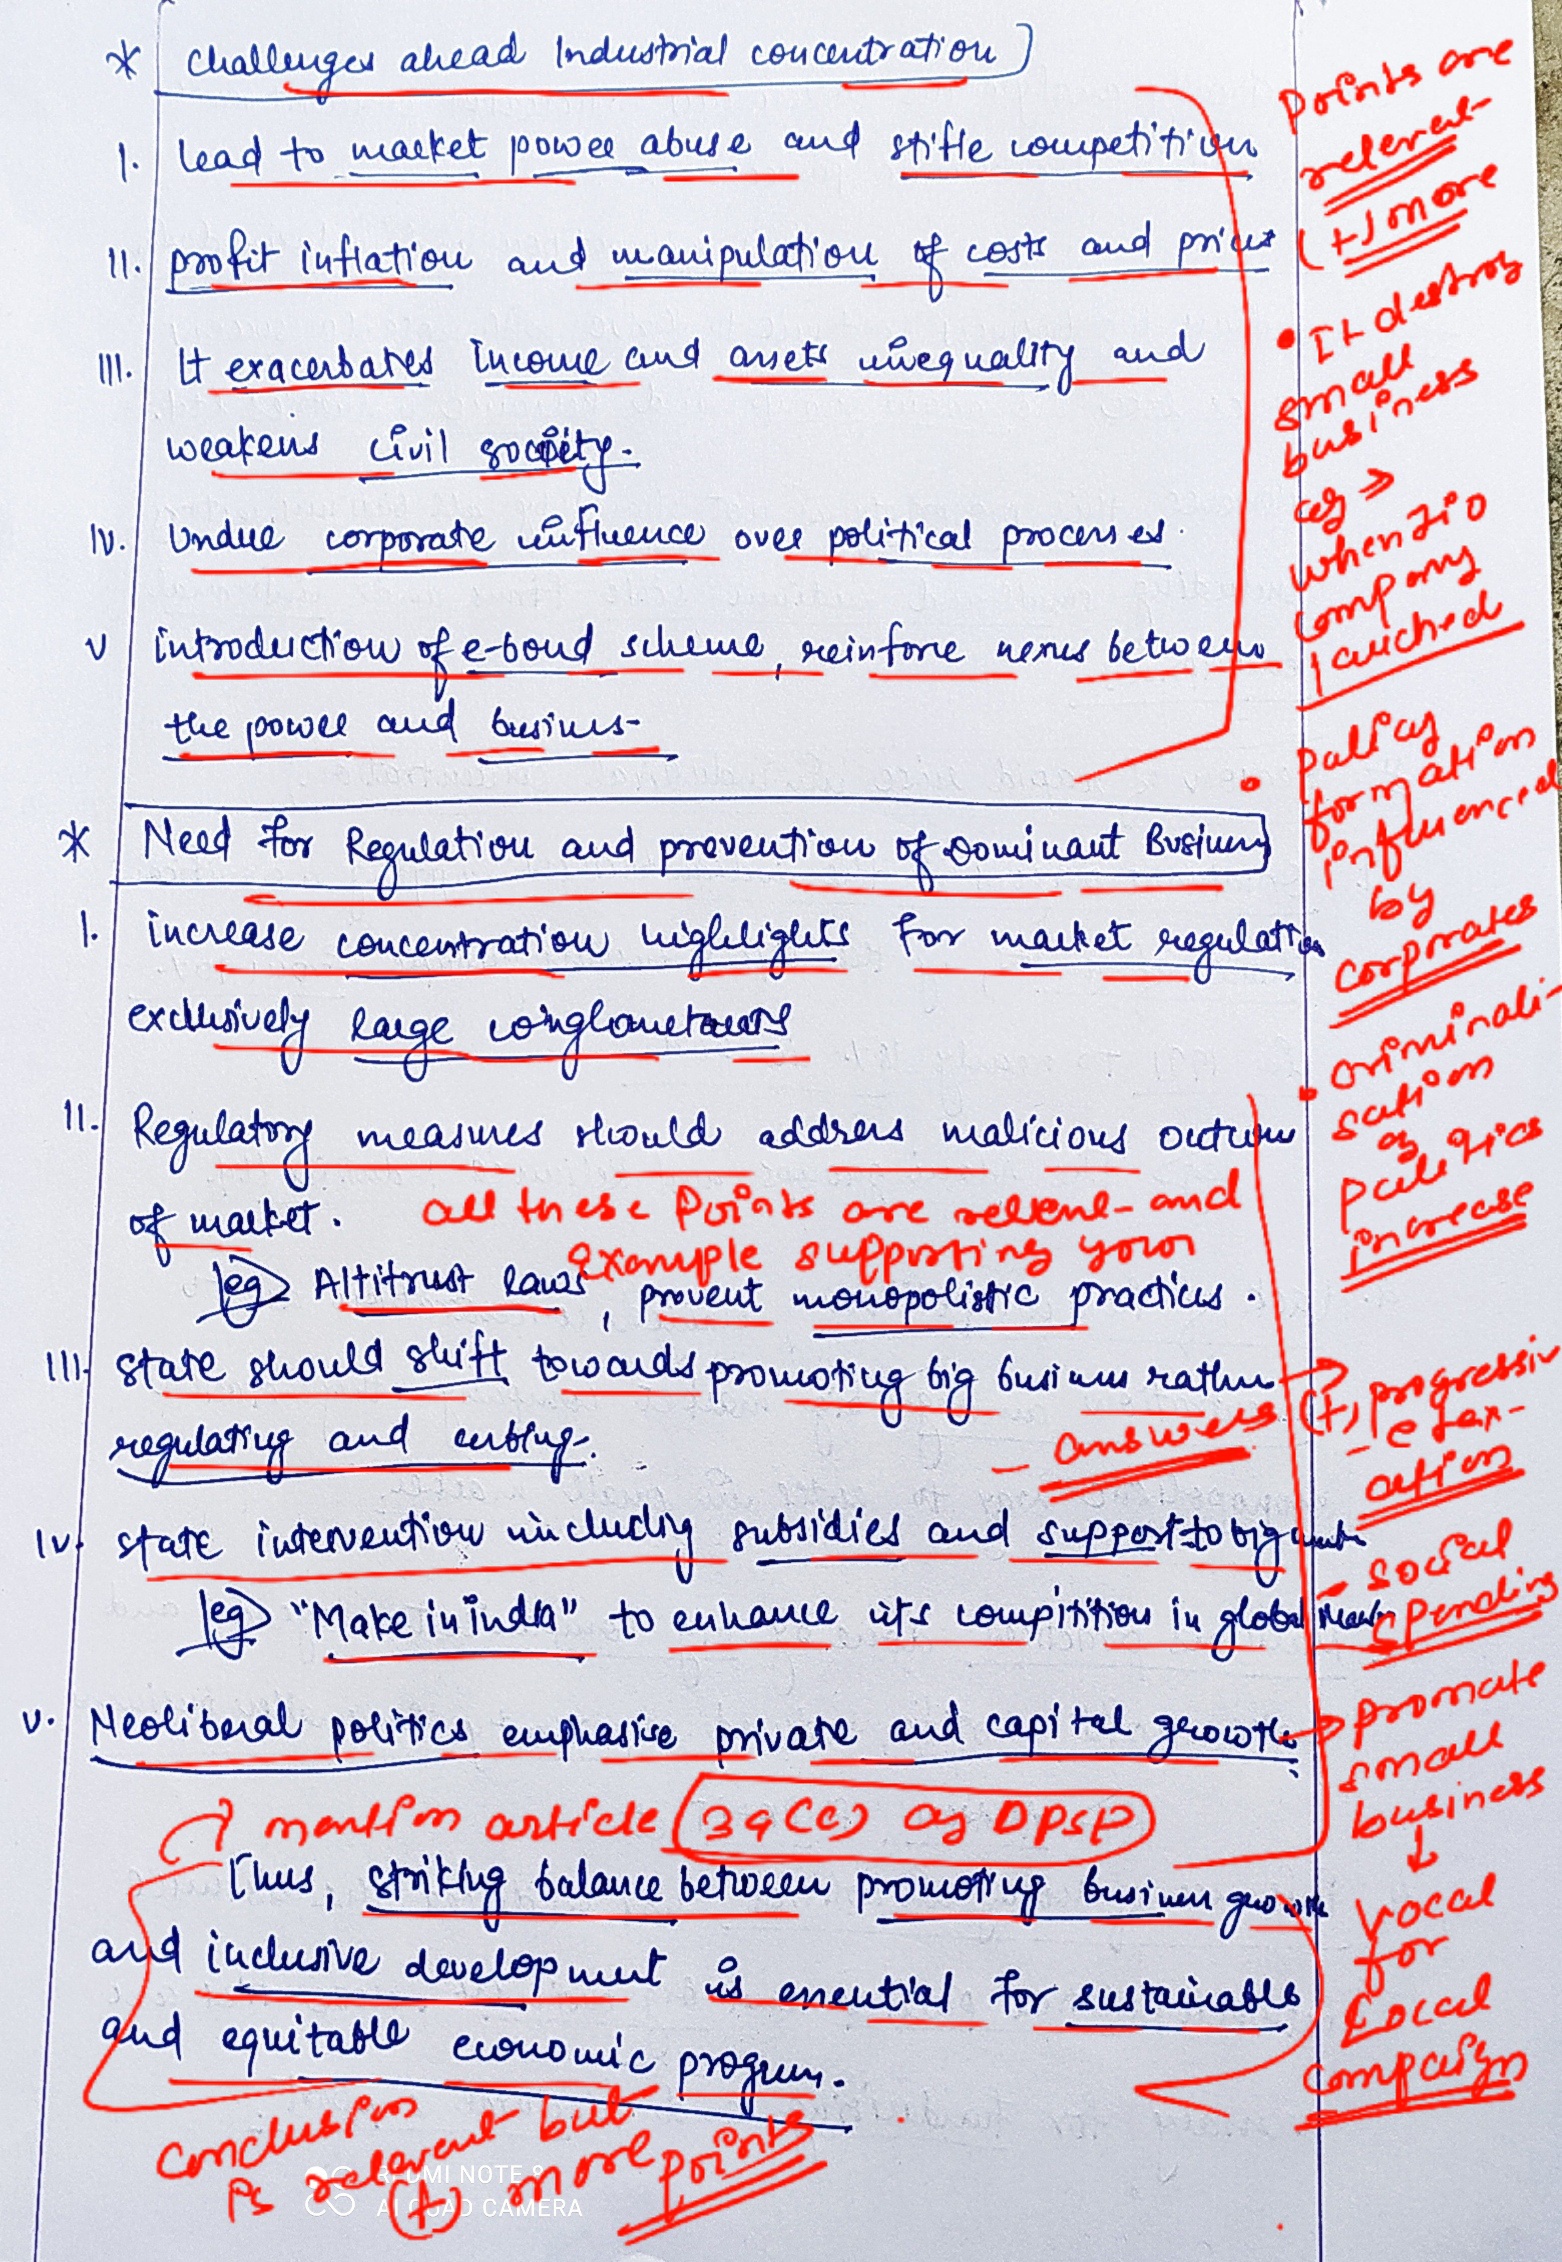 * Challenges ahead Industrial concentration
I. lead to market power abuse and stifle competition
II. profit inflation and manipulation of costs and prices
III. It exacerbates income and assets inequality and
weakens civil society.
IV. Undue corporate influence over political processes.
V introduction of e-bond scheme, reinforce nexus between
the power and business
Points are
relevent
(+) more
• It destroy
small
business
eg ⇒
when Jio
company
lauched
• policy
formation
influenced
by
corporates
• criminali-
sation
of
politics
increase
* Need for Regulation and prevention of Dominant Business
I. increase concentration highlights for market regulation
exclusively large
II. Regulatory measures should address malicious outcome
of market.
all these Points are relevent and
Example supporting your
eg Altitrust laws, prevent monopolistic practices.
III. state should shift towards promoting big business rather
regulating and curbing.
- answers
(+) progressiv
- e tax-
ation
IV. state intervention including subsidies and support to big
eg "Make in india" to enhance its compitition in global
- social
spending
V. Neoliberal politics emphasise private and capital growth
→ promote
small
business
↓
vocal
for
Local
campaign
mention article 39(c) of DPSP
Thus, striking balance between promoting business growth
and inclusive development is essential for sustainable
and equitable economic progress.
conclusion
is relevant but
(+) more points
REDMI NOTE 8
AI QUAD CAMERA